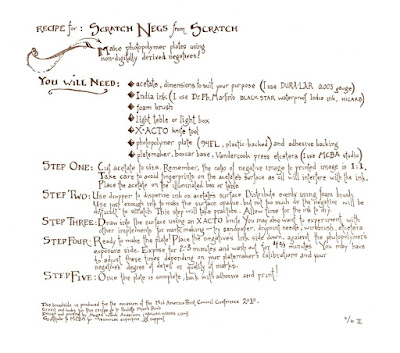 RECIPE FOR: SCRATCH NEGS from SCRATCH
Make photopolymer plates using
non-digitally derived negatives!
YOU WILL NEED:
acetate, dimensions to suit your purpose (I use DURALAR 0.003 gauge)
India Ink (I use Dr. Ph. Martin's BLACK STAR waterproof India ink, HICARB)
foam brush
light table or light box
X-ACTO knife tool
photopolymer plate (94FL, plastic backed) and adhesive backing
platemaker, boxcar base, Vandercook press etcetera (I use MCBA studio)
STEP ONE: Cut acetate to size. Remember, the ratio of negative image to printed image is 1:1.
Take care to avoid fingerprints on the acetate's surface as oil will interfere with the ink.
Place the acetate on the illuminated box or table
STEP TWO: Use dropper to disperse ink on acetate's surface. Distribute evenly using foam brush.
Use just enough ink to make the surface opaque, but not too much or the negative will be
difficult to scratch. This step will take practice. Allow time for the ink to dry.
STEP THREE: Draw into the surface using an XACTO knife. You may also want to experiment with
other implements for mark-making — try sandpaper, drypoint needle, wirebrush, etcetera
STEP FOUR: Ready to make the plate! Place the negative's ink side down, against the photopolymer's
exposure side. Expose for 2-3 minutes and wash out for minutes. You may have
to adjust these times depending on your platemaker's calibrations and your
negatives' degree of detail or quality of marks.
STEP FIVE: Once the plate is complete, back with adhesive and print!
This broadside is produced for the occasion of the 31st America Craft Council Conference 2010.
for this recipe go to
Designed and printed by American
Gratitude to MCBA for support